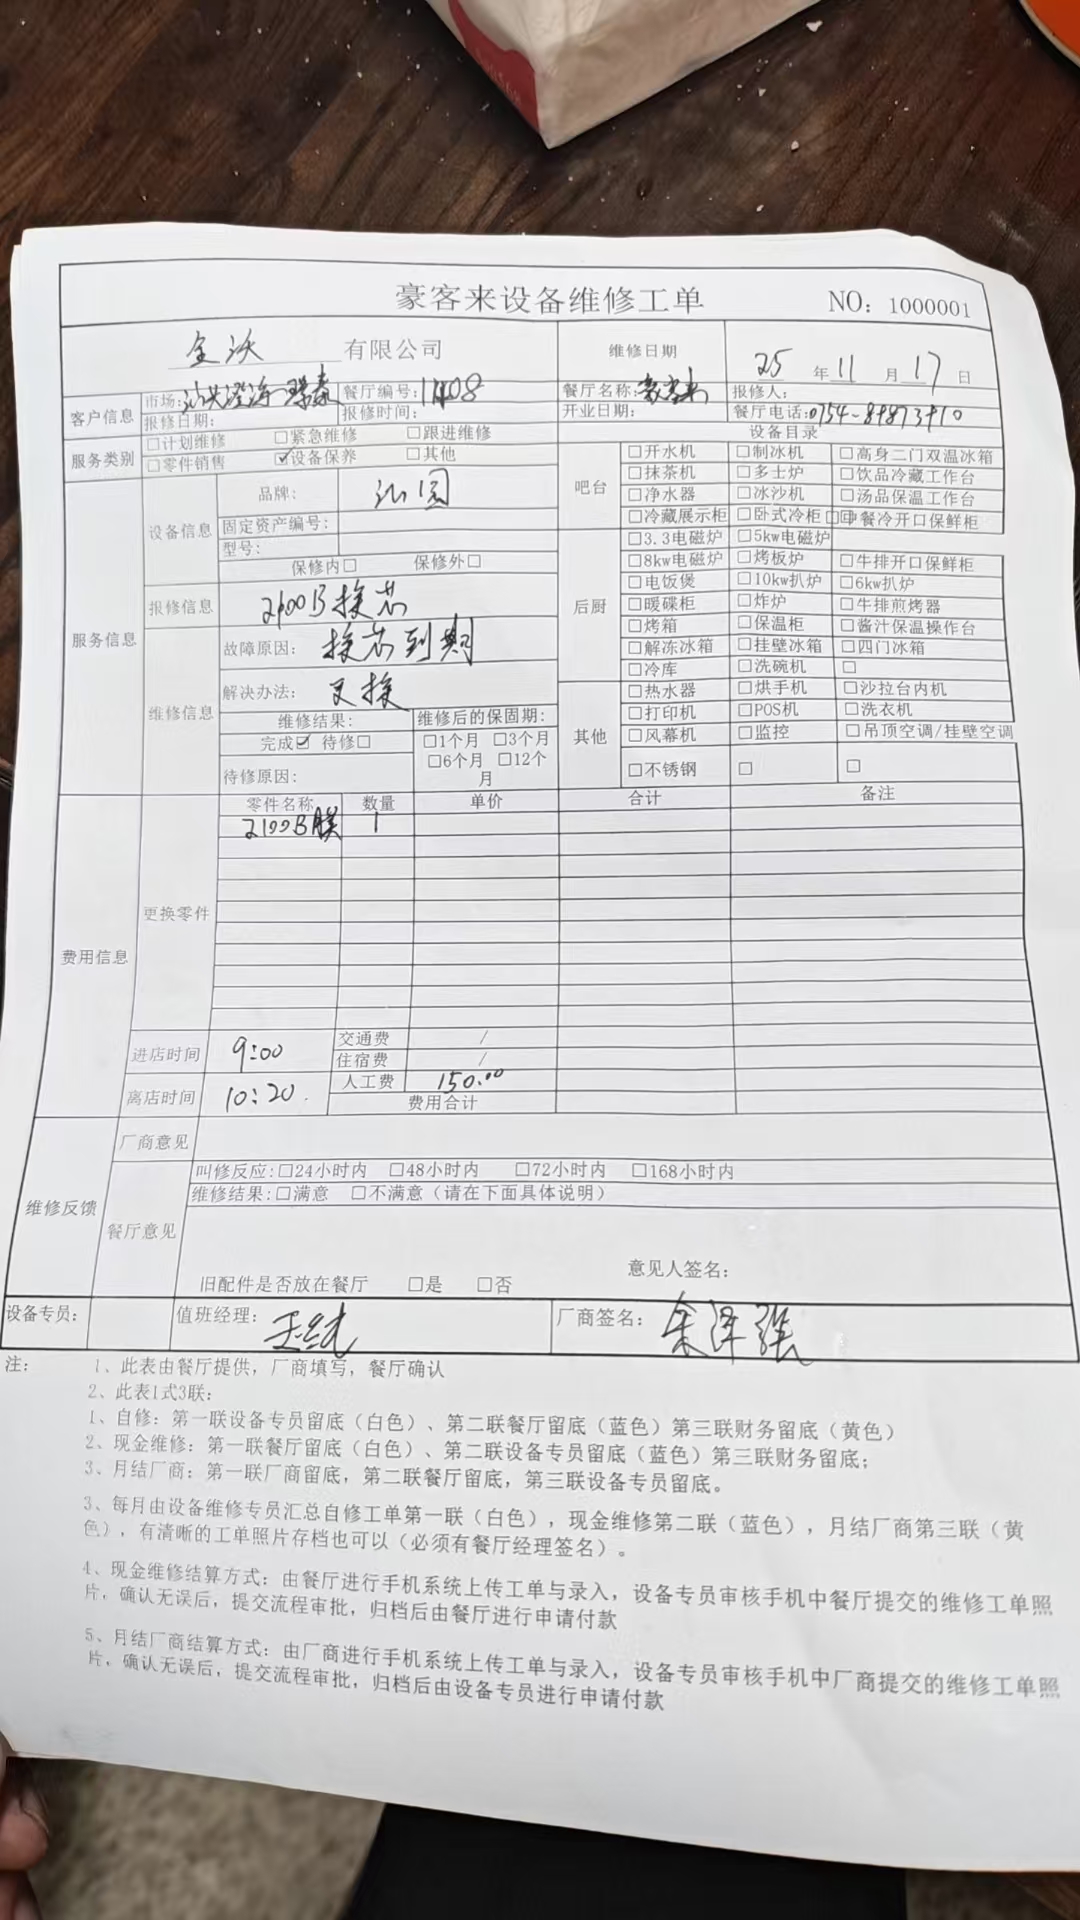 豪客来设备维修工单 NO：1000001
全沃 有限公司 维修日期 25 年 11 月 17 日
客户信息 市场： 餐厅编号：11408 餐厅名称：豪客来 报修人：
报修日期： 报修时间： 开业日期： 餐厅电话：0754-89873910
服务类别 □计划维修 □紧急维修 □跟进维修 设备目录
□零件销售 ☑设备保养 □其他
吧台 □开水机 □制冰机 □高身二门双温冰箱
□抹茶机 □多士炉 □饮品冷藏工作台
□净水器 □冰沙机 □汤品保温工作台
□冷藏展示柜 □卧式冷柜 □中餐冷开口保鲜柜
服务信息 设备信息 品牌： 沁园
固定资产编号：
型号：
保修内□ 保修外□
后厨 □3.3电磁炉 □5kw电磁炉
□8kw电磁炉 □烤板炉 □牛排开口保鲜柜
□电饭煲 □10kw扒炉 □6kw扒炉
□暖碟柜 □炸炉 □牛排煎烤器
□烤箱 □保温柜 □酱汁保温操作台
□解冻冰箱 □挂壁冰箱 □四门冰箱
□冷库 □洗碗机 □
报修信息 2100B换芯
维修信息 故障原因： 换芯到期
解决办法： 更换
维修结果： 维修后的保固期：
完成☑ 待修□ □1个月 □3个月
□6个月 □12个月
待修原因：
其他 □热水器 □烘手机 □沙拉台内机
□打印机 □POS机 □洗衣机
□风幕机 □监控 □吊顶空调/挂壁空调
□不锈钢 □ □
费用信息 更换零件 零件名称 数量 单价 合计 备注
2100B膜 1
进店时间 9:00 交通费 /
住宿费 /
离店时间 10:20 人工费 150.00
费用合计
维修反馈 厂商意见
餐厅意见 叫修反应：□24小时内 □48小时内 □72小时内 □168小时内
维修结果：□满意 □不满意（请在下面具体说明）
意见人签名：
旧配件是否放在餐厅 □是 □否
设备专员： 值班经理： 厂商签名： 余泽强
注： 1、此表由餐厅提供，厂商填写，餐厅确认
2、此表1式3联：
1、自修：第一联设备专员留底（白色）、第二联餐厅留底（蓝色）第三联财务留底（黄色）
2、现金维修：第一联餐厅留底（白色）、第二联设备专员留底（蓝色）第三联财务留底；
3、月结厂商：第一联厂商留底，第二联餐厅留底，第三联设备专员留底。
3、每月由设备维修专员汇总自修工单第一联（白色），现金维修第二联（蓝色），月结厂商第三联（黄
色），有清晰的工单照片存档也可以（必须有餐厅经理签名）。
4、现金维修结算方式：由餐厅进行手机系统上传工单与录入，设备专员审核手机中餐厅提交的维修工单照
片，确认无误后，提交流程审批，归档后由餐厅进行申请付款
5、月结厂商结算方式：由厂商进行手机系统上传工单与录入，设备专员审核手机中厂商提交的维修工单照
片，确认无误后，提交流程审批，归档后由设备专员进行申请付款